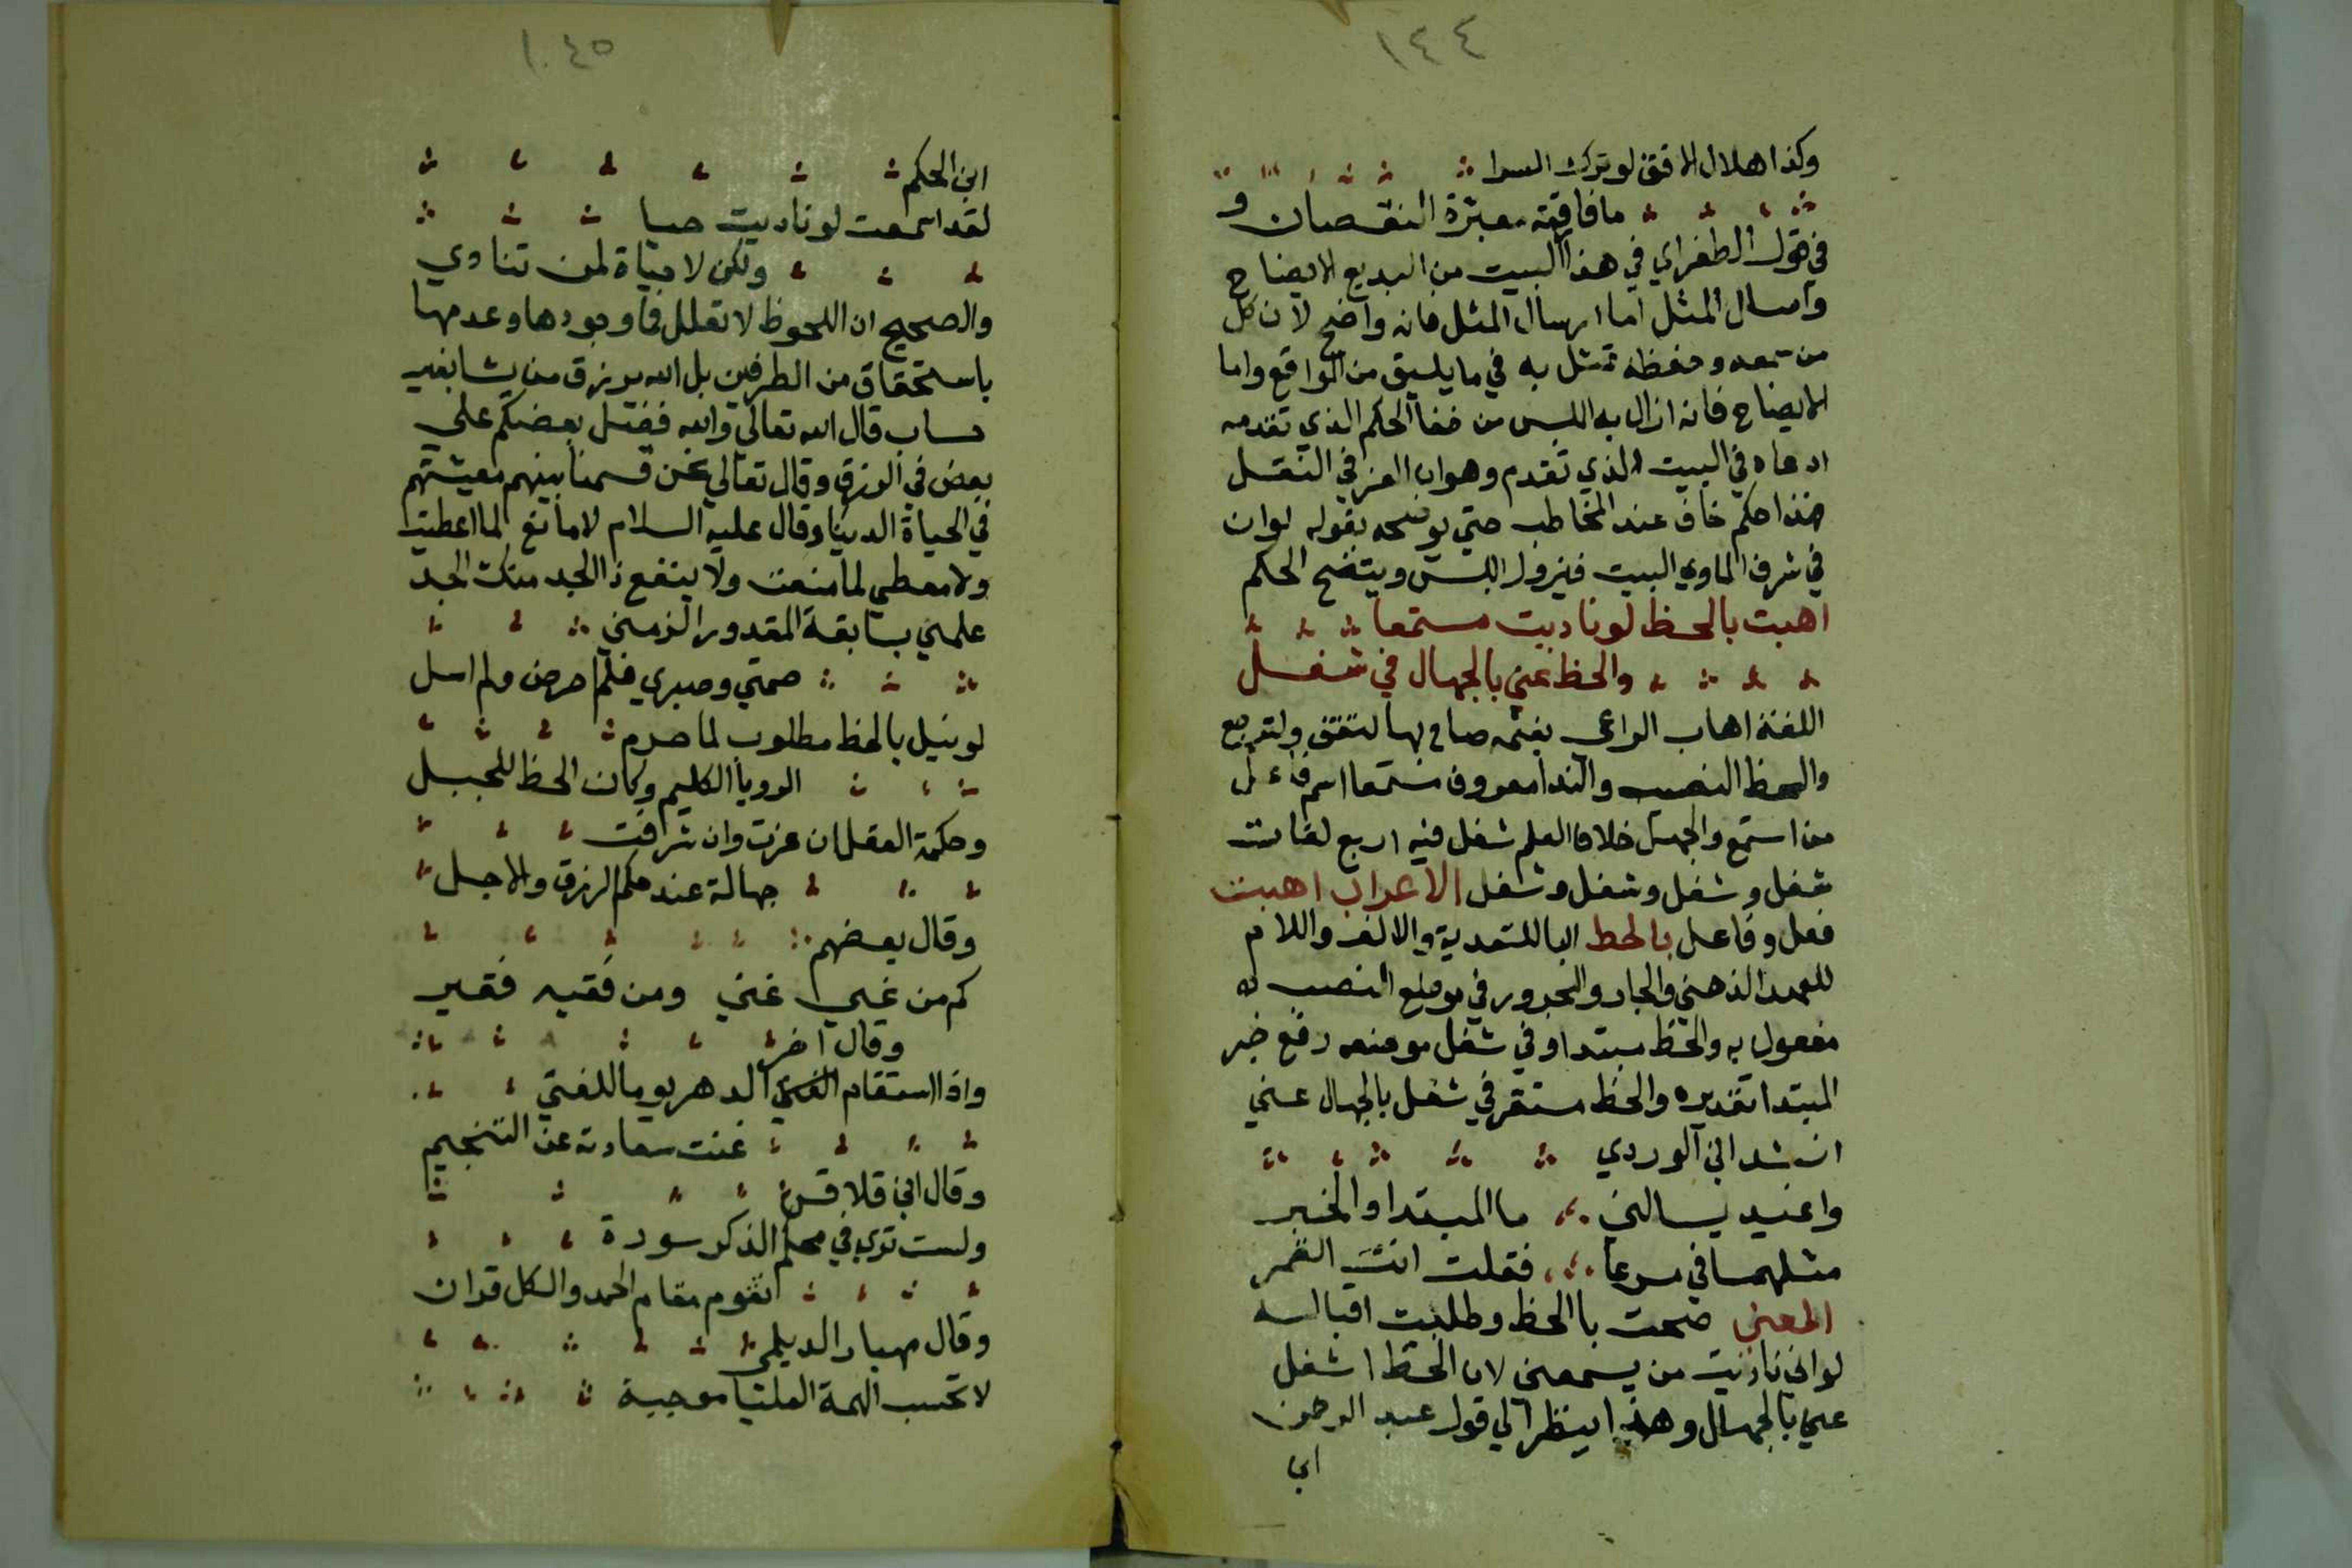 ١٤٤
وكذا هلال الافق لو ترك السرا
ما فاقته معرة النقصان و
في قول الطغراي في هذا البيت من البديع الايضاح
وارسال المثل اما ارسال المثل فانه واضح لان كل
من سمعه وحفظه تمثل به في ما يليق من المواقع واما
الايضاح فانه ازال به اللبس من خفا الحكم الذي تقدمه
ادعاه في البيت الذي تقدم وهو ان العز في النقل
فهذا حكم خاف عند المخاطب حتي يوضحه بقوله لو ان
في شرف الماوي البيت فيزول اللبس ويتضح الحكم
اهبت بالحظ لو ناديت مستمعا
والحظ عني بالجهال في شغل
اللغة اهاب الراعي بغنمه صاح بها لتقف ولترجع
والحظ النصيب والندا معروف مستمعا اسم فاعل
من استمع والجهل خلاف العلم شغل فيه اربع لغات
شغل وشغل وشغل وشغل الاعراب اهبت
فعل وفاعل بالحظ البا للتعدية والالف واللام
للعهد الذهني والجار والمجرور في موضع النصب له
مفعول به والحظ مبتدا وفي شغل موضعه رفع خبر
المبتدا تقديره والحظ مستقر في شغل بالجهال عني
انشد ابن الوردي
واغيد يسالني ما المبتدا والخبر
مثلهما في مسرعا فقلت انت القمر
المعني صحت باالحظ وطلبت اقباله
لو اني ناديت من يسمعني لان الحظ اشغل
عني بالجهال وهذا ينظر الي قول عبد الرحمن
ابي
١٠٤٥
ابن الحكم
لقد اسمعت لو ناديت حيا
ولكن لا حياة لمن تنادي
والصحيح ان اللحوظ لا تعلل في وجودها وعدمها
باستحقاق من الطرفين بل الله يرزق من يشا بغير
حساب قال الله تعالي والله فضل بعضكم علي
بعض في الرزق وقال تعالي نحن قسمنا بينهم معيشتهم
في الحياة الدنيا وقال عليه السلام لا مانع لما اعطيت
ولا معطي لما منعت ولا ينفع ذا الجد منك الجد
علمني بسابقة المقدور الزمني
صمتي وصبري فلم احرص ولم اسل
لو نيل بالحظ مطلوب لما حرم
الرويا الكليم وكان الحظ للجبل
وحكمة العقل ان عزت وان شرافت
جهالة عند حكم الرزق والاجل
وقال بعضهم
كم من غبي غني ومن فقيه فقير
وقال اخر
واذا استقام الدهر يوما للفتي
غنت سعادته عن التنجيم
وقال ابن قلاقس
ولست تري في محكم الذكر سورة
تقوم مقام الحمد والكل قران
وقال مهيار الديلمي
لا تحسب الهمة العليا موجبة